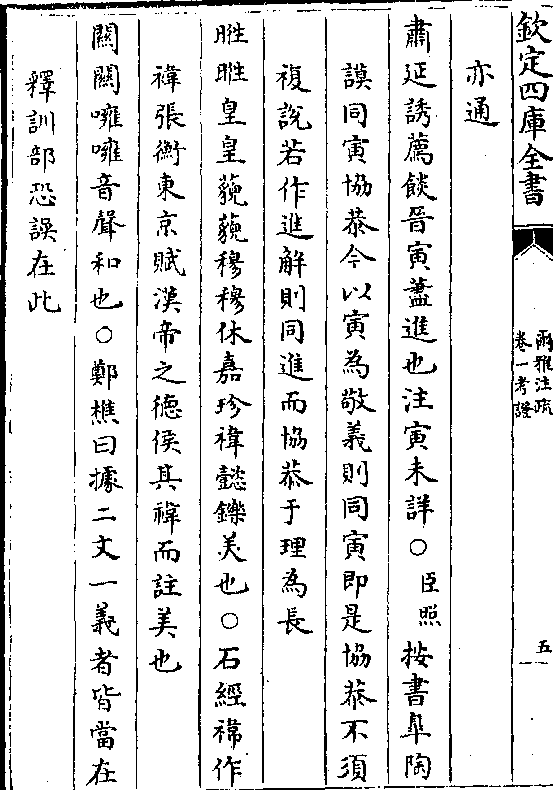 欽定四庫全書
爾雅注疏
卷一考證
五
亦通
肅延誘薦餤晉寅藎進也注寅未詳○臣照按書臯陶
謨同寅協恭今以寅為敬義則同寅即是協恭不須
複說若作進解則同進而協恭于理為長
暀暀皇皇藐藐穆穆休嘉珍禕懿鑠美也○石經禕作
褘張衡東京賦漢帝之德侯其褘而註美也
關關噰噰音聲和也○鄭樵曰據二文一義者皆當在
釋訓部恐誤在此